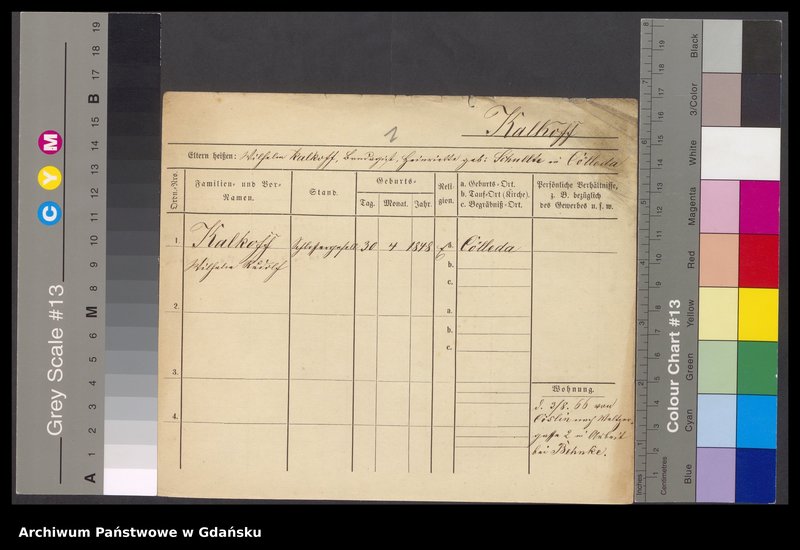 1
Kalkoff
Eltern heißen: Wilhelm Kalkoff, Henriette geb: Schulltze u Cölleda
Ordn.-Nro.
Familien- und Vor-
Namen.
Stand.
Geburts-
Tag. Monat. Jahr.
Reli-
gion.
a. Geburts-Ort.
b. Tauf-Ort (Kirche).
c. Begräbniß-Ort.
Persönliche Verhältnisse,
z. B. bezüglich
des Gewerbes u. s. w.
1. Kalkoff Schlossergesell 30 4 1848 a. Cölleda
Wilhelm Rudolf
b.
c.
2.
a.
b.
c.
3.
4.
Wohnung.
3/8. 66 von
Cöslin nach
gasse 2 u Arbeit
bei Behnke.
Grey Scale #13
C Y M
A 1 2 3 4 5 6 M 8 9 10 11 12 13 14 15 B 17 18 19
Colour Chart #13
Blue Cyan Green Yellow Red Magenta White 3/Color Black
Inches
Centimetres
Archiwum Państwowe w Gdańsku